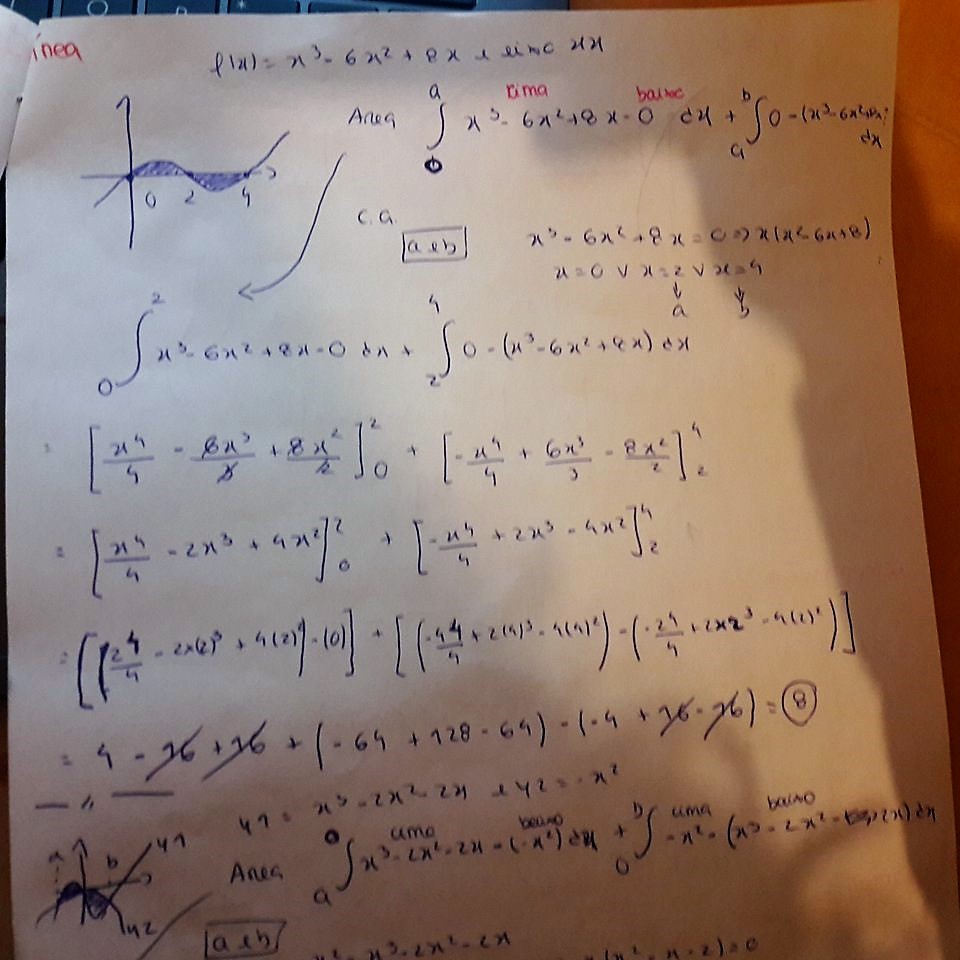 f(x) = x³ - 6x² + 8x e eixo xx
Area ∫₀ᵃ x³ - 6x² + 8x - 0 dx + ∫ₐᵇ 0 - (x³ - 6x² + 8x) dx
cima baixo
0 2 4
c.a.
a e b
x³ - 6x² + 8x = 0 => x(x² - 6x + 8)
x = 0 ∨ x = 2 ∨ x = 4
a b
∫₀² x³ - 6x² + 8x - 0 dx + ∫₂⁴ 0 - (x³ - 6x² + 8x) dx
= [x⁴/4 - 6x³/3 + 8x²/2]₀² + [-x⁴/4 + 6x³/3 - 8x²/2]₂⁴
= [x⁴/4 - 2x³ + 4x²]₀² + [-x⁴/4 + 2x³ - 4x²]₂⁴
= [(2⁴/4 - 2x(2)³ + 4(2)²) - (0)] + [(-4⁴/4 + 2(4)³ - 4(4)²) - (-2⁴/4 + 2x2³ - 4(2)²)]
= 4 - 16 + 16 + (-64 + 128 - 64) - (-4 + 16 - 16) = 8
y1 = x³ - 2x² - 2x e y2 = -x²
cima baixo cima baixo
Area ∫ₐ⁰ x³ - 2x² - 2x - (-x²) dx + ∫₀ᵇ -x² - (x³ - 2x² - 2x) dx
a b y1
y2
a e b
-x² = x³ - 2x² - 2x
(x² - x - 2) = 0